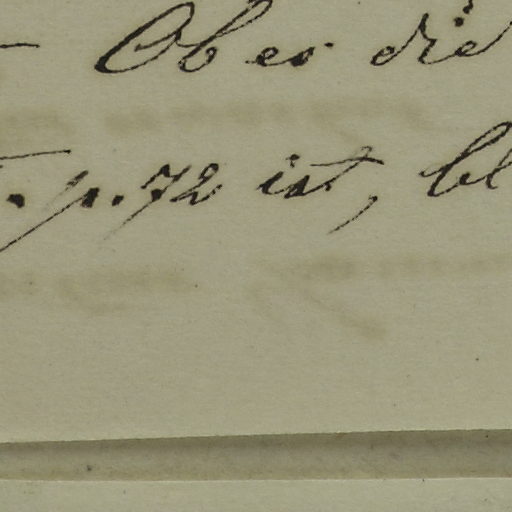 — Ob es die
. p. 72 ist, bl